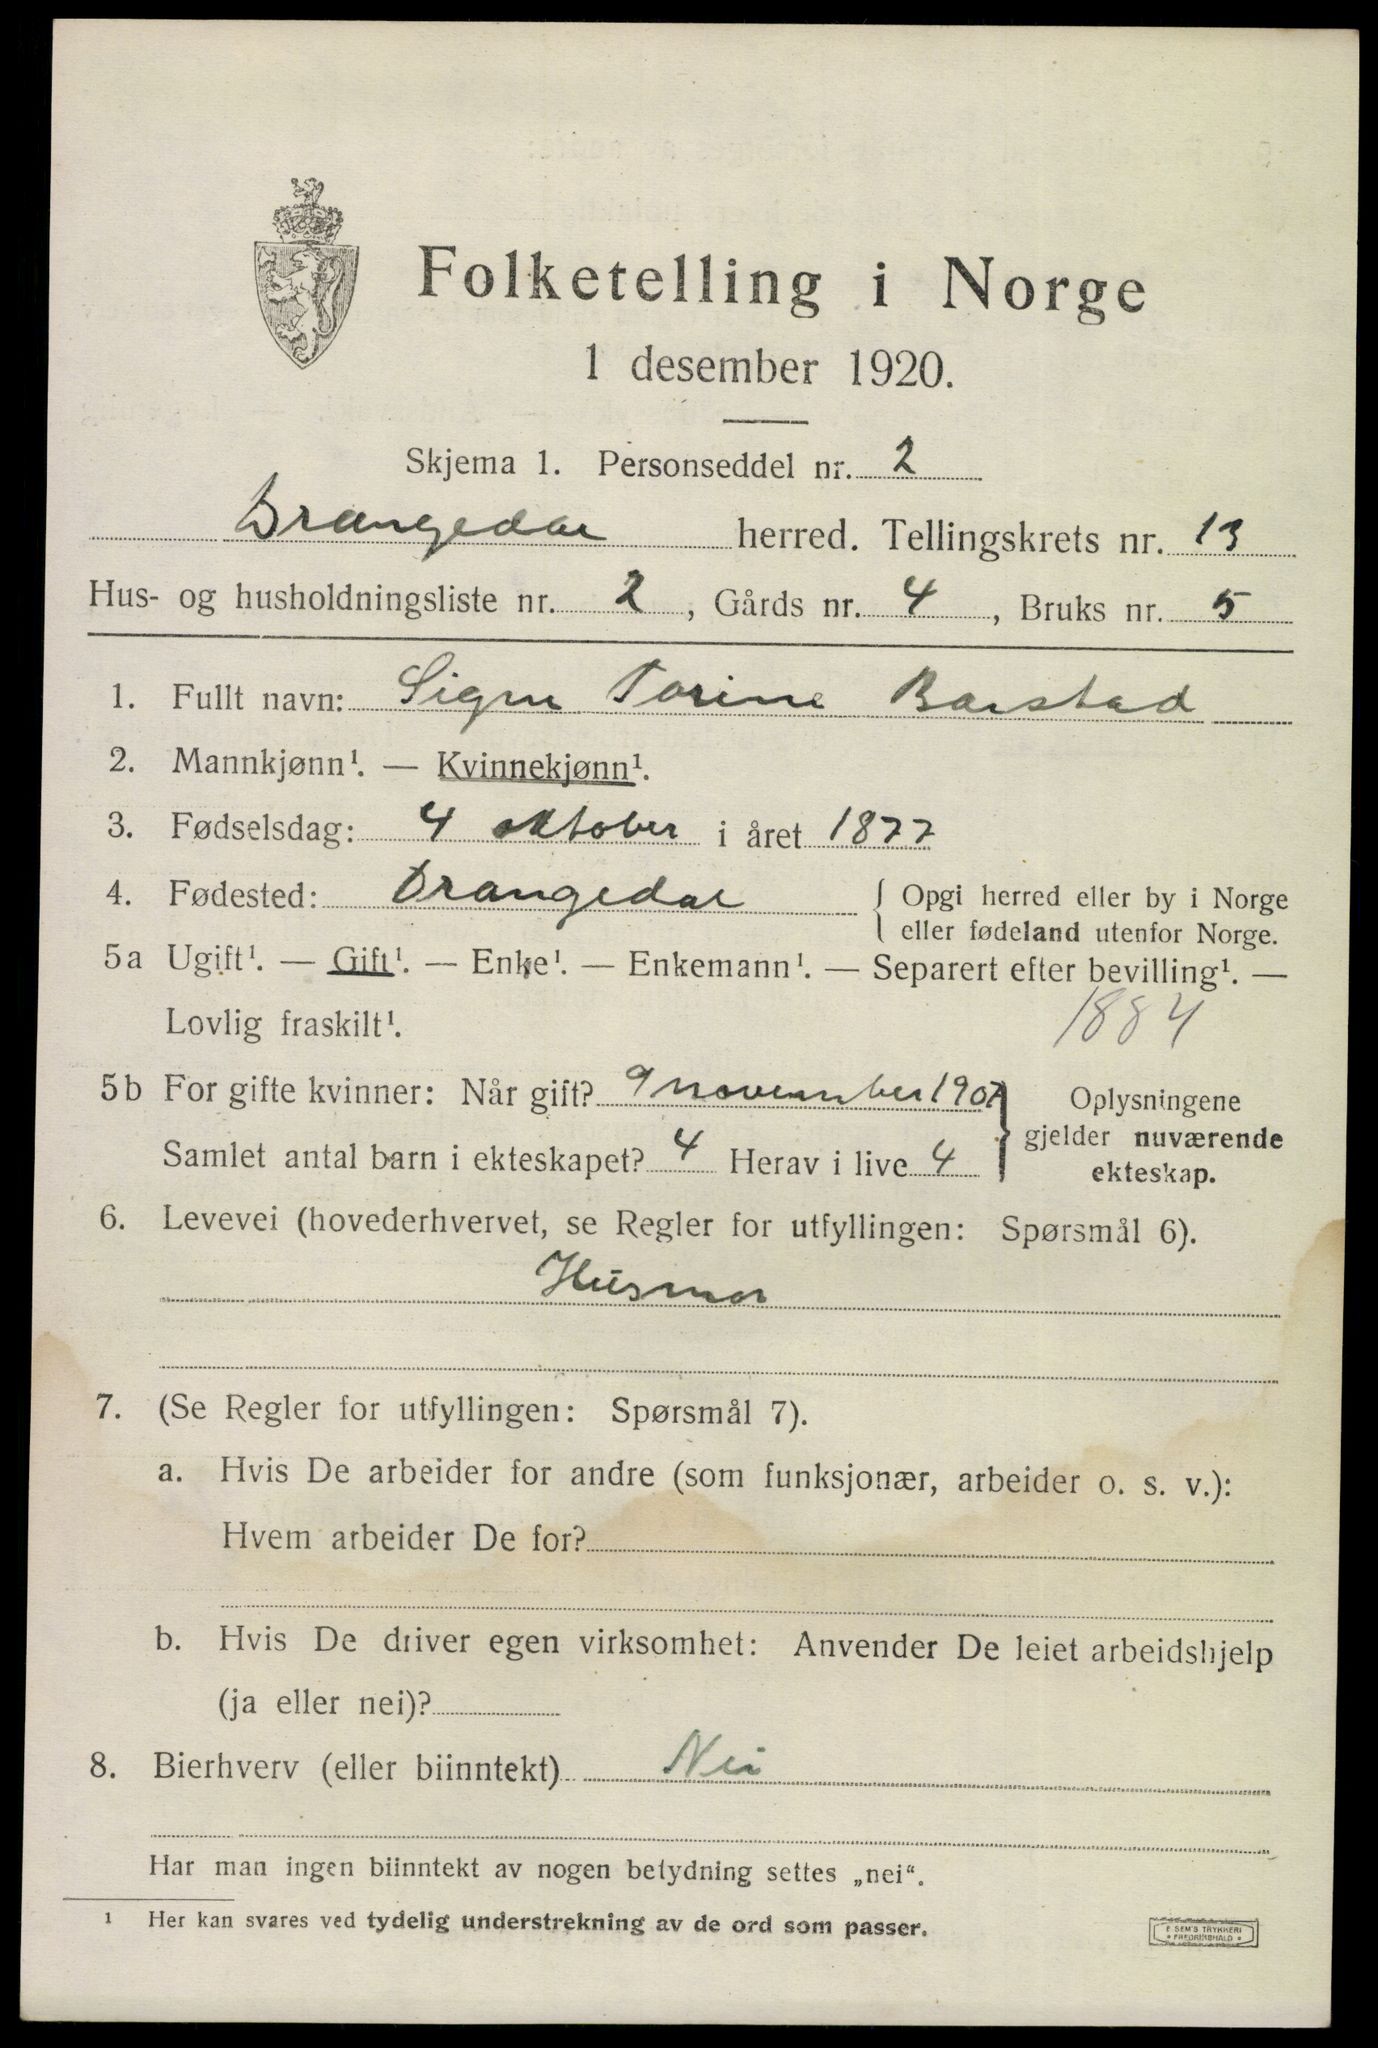 Folketelling i Norge
1 desember 1920.
Skjema 1. Personseddel nr. 2
Drangedal herred. Tellingskrets nr. 13
Hus- og husholdningsliste nr. 2, Gårds nr. 4, Bruks nr. 5
1. Fullt navn: Signe Torine Barstad
2. Mannkjønn¹. — Kvinnekjønn¹.
3. Fødselsdag: 4 oktober i året 1877
4. Fødested: Drangedal { Opgi herred eller by i Norge
eller fødeland utenfor Norge.
5a Ugift¹. — Gift¹. — Enke¹. — Enkemann¹. — Separert efter bevilling¹. —
Lovlig fraskilt¹. 1884
5b For gifte kvinner: Når gift? 9 november 1907 } Oplysningene
gjelder nuværende
Samlet antal barn i ekteskapet? 4 Herav i live 4
ekteskap.
6. Levevei (hovederhvervet, se Regler for utfyllingen: Spørsmål 6).
Husmor
7. (Se Regler for utfyllingen: Spørsmål 7).
a. Hvis De arbeider for andre (som funksjonær, arbeider o. s. v.):
Hvem arbeider De for?
b. Hvis De driver egen virksomhet: Anvender De leiet arbeidshjelp
(ja eller nei)?
8. Bierhverv (eller biinntekt) Nei
Har man ingen biinntekt av nogen betydning settes „nei“.
¹ Her kan svares ved tydelig understrekning av de ord som passer.
E SEM'S TRYKKERI
• FREDRIKSHALD •